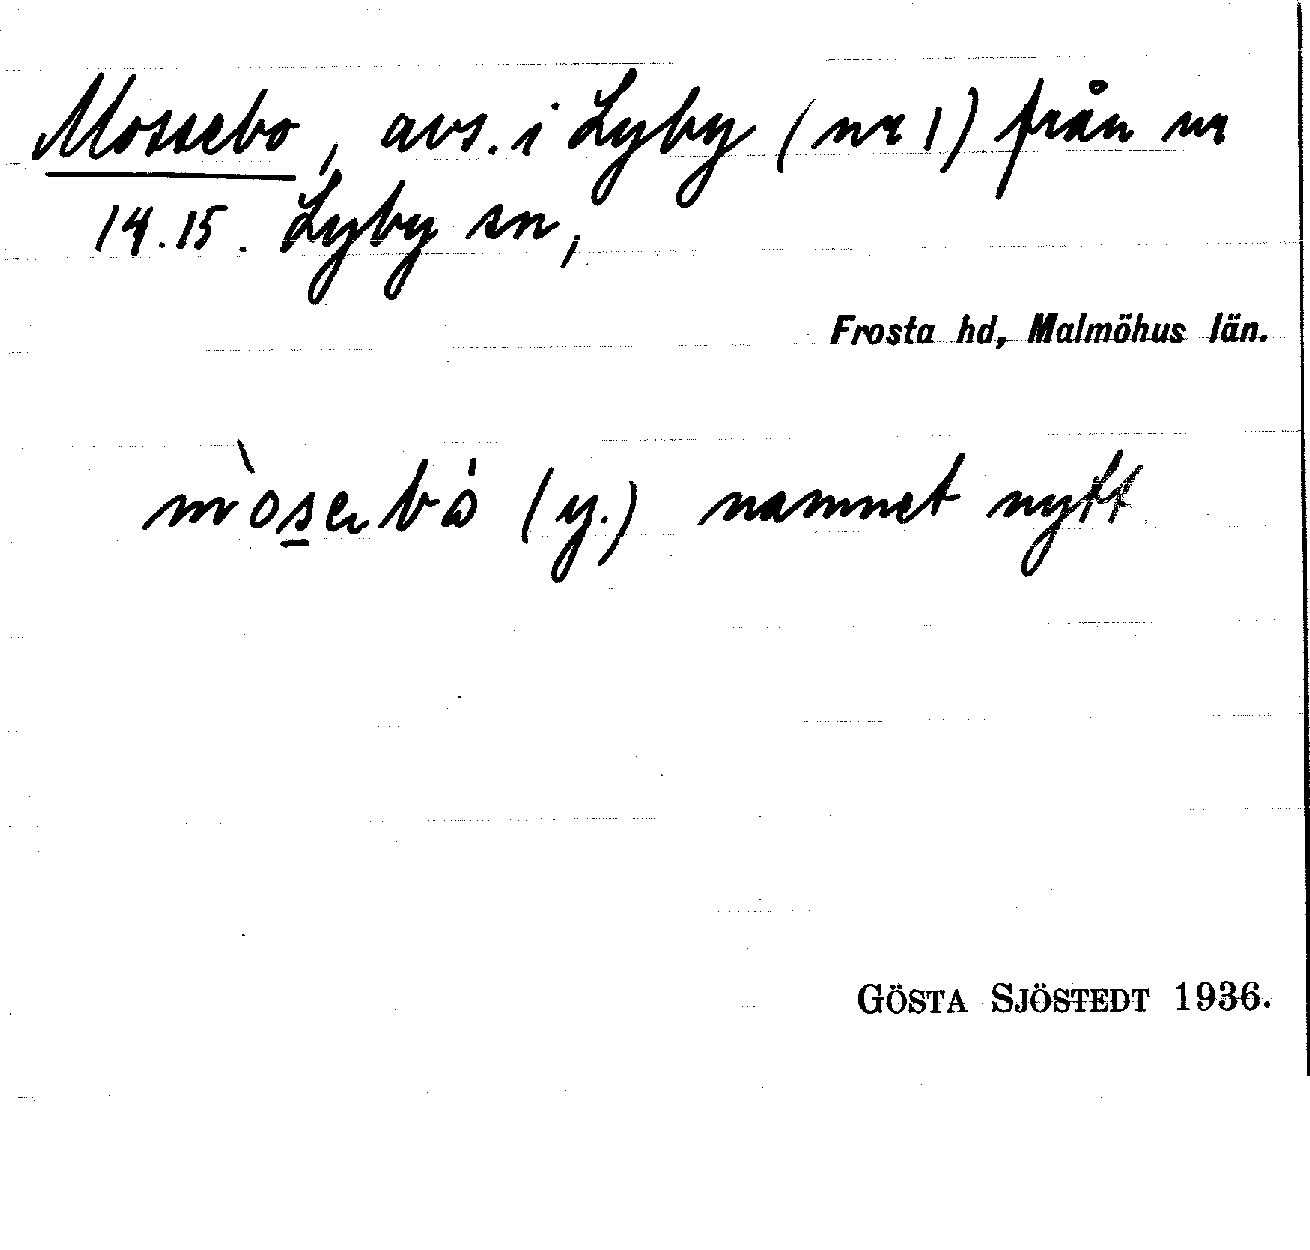 Mossebo, avs. i Lyby (nr 1) från nr
14.15. Lyby sn,
Frosta hd, Malmöhus län.
(y.) namnet nytt
GÖSTA SJÖSTEDT 1936.